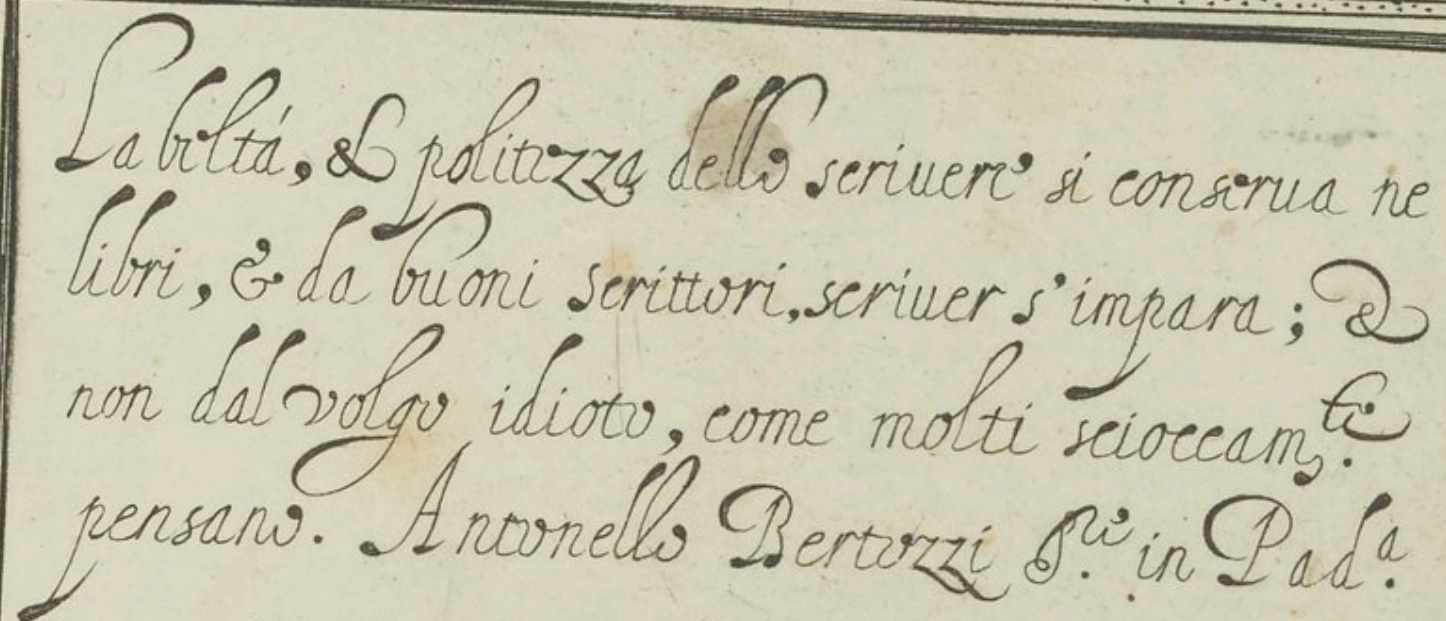 La beltá, & politezza dello scriuere si conserua ne
libri, & da buoni scrittori, scriuer s'impara; &
non dal volgo idioto, come molti scioccam.te
pensano. Antonello Bertozzi S.re in Pad.a